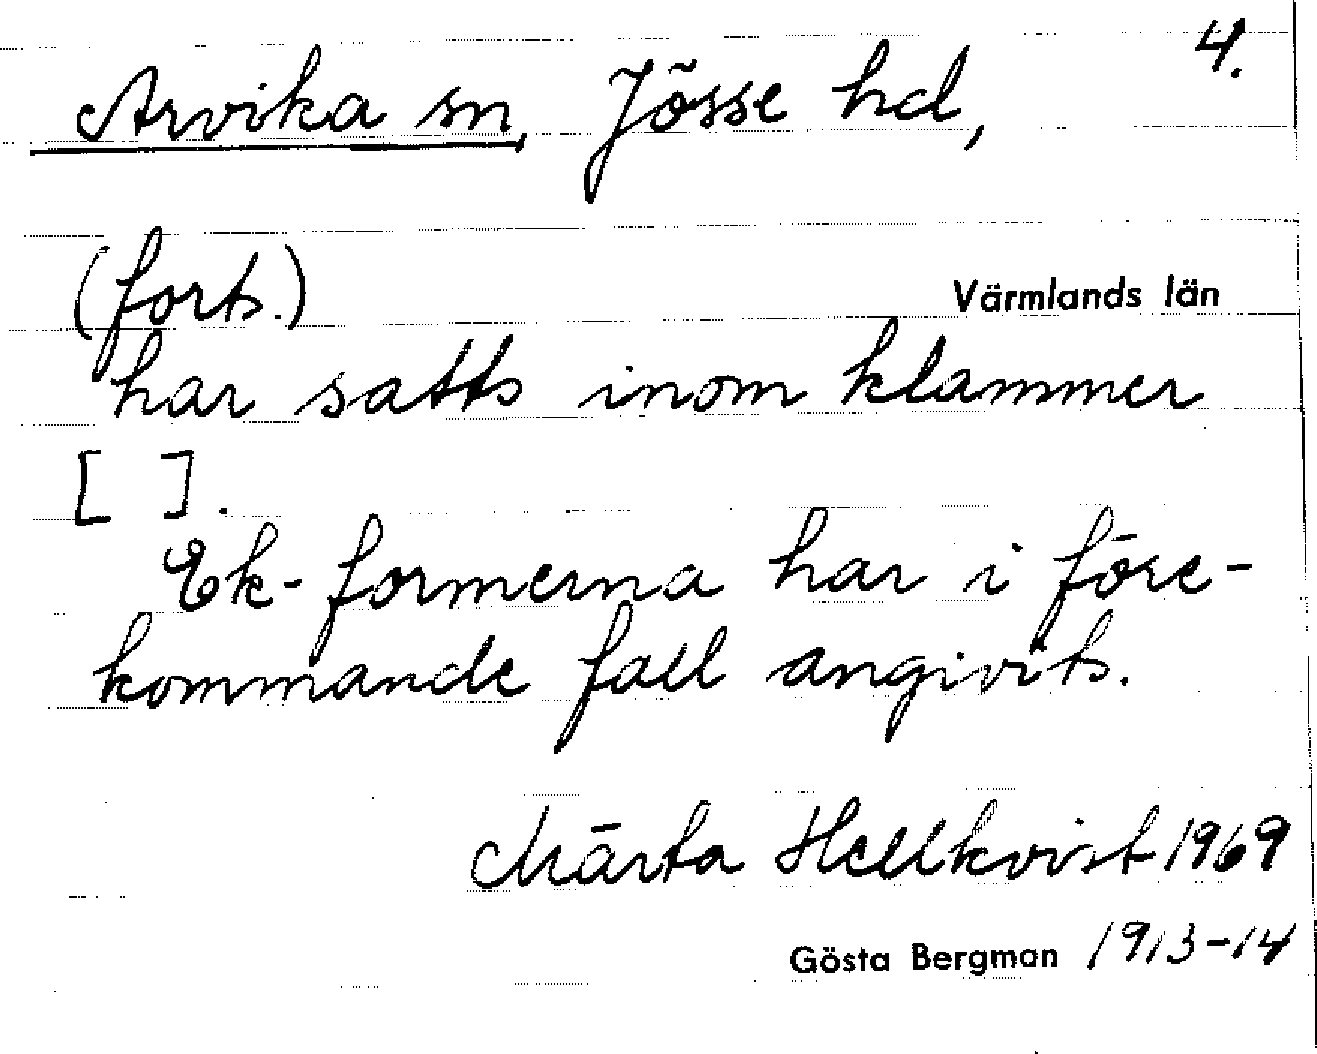 4.
Arvika sn, Jösse hd,
(forts.)
Värmlands län
har satts inom klammer
[ ].
Ek-formerna har i före-
kommande fall angivits.
Märta Hellkvist 1969
Gösta Bergman 1913-14